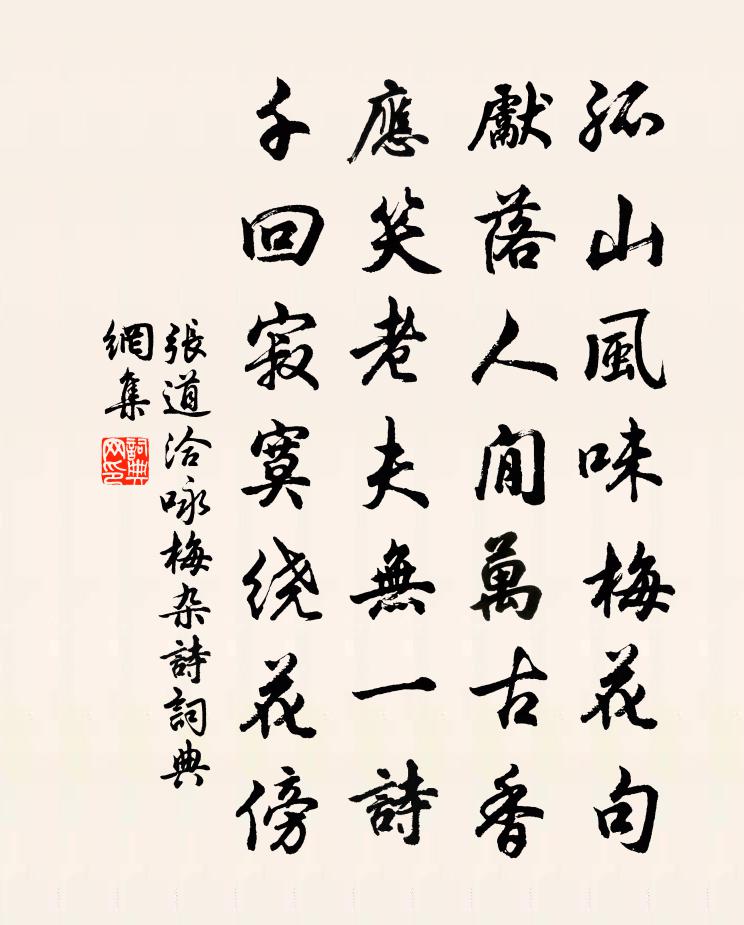 孤山風味梅花句
獻落人間萬古香
應笑老夫無一詩
千回寂寞绕花傍
張道洽咏梅杂詩詞典
網集
詞典
网印